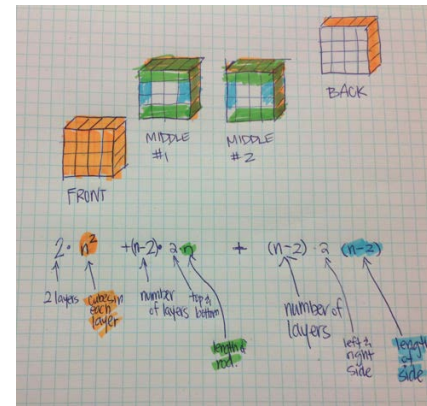 BACK
MIDDLE
#1
MIDDLE
#2
FRONT
2· n² +(n-2)· 2 n + (n-2) · 2 (n-2)
2 layers
cubes in
each
layer
number
of layers
top &
bottom
length of
rod.
number of
layers
left &
right
side
length
of
side